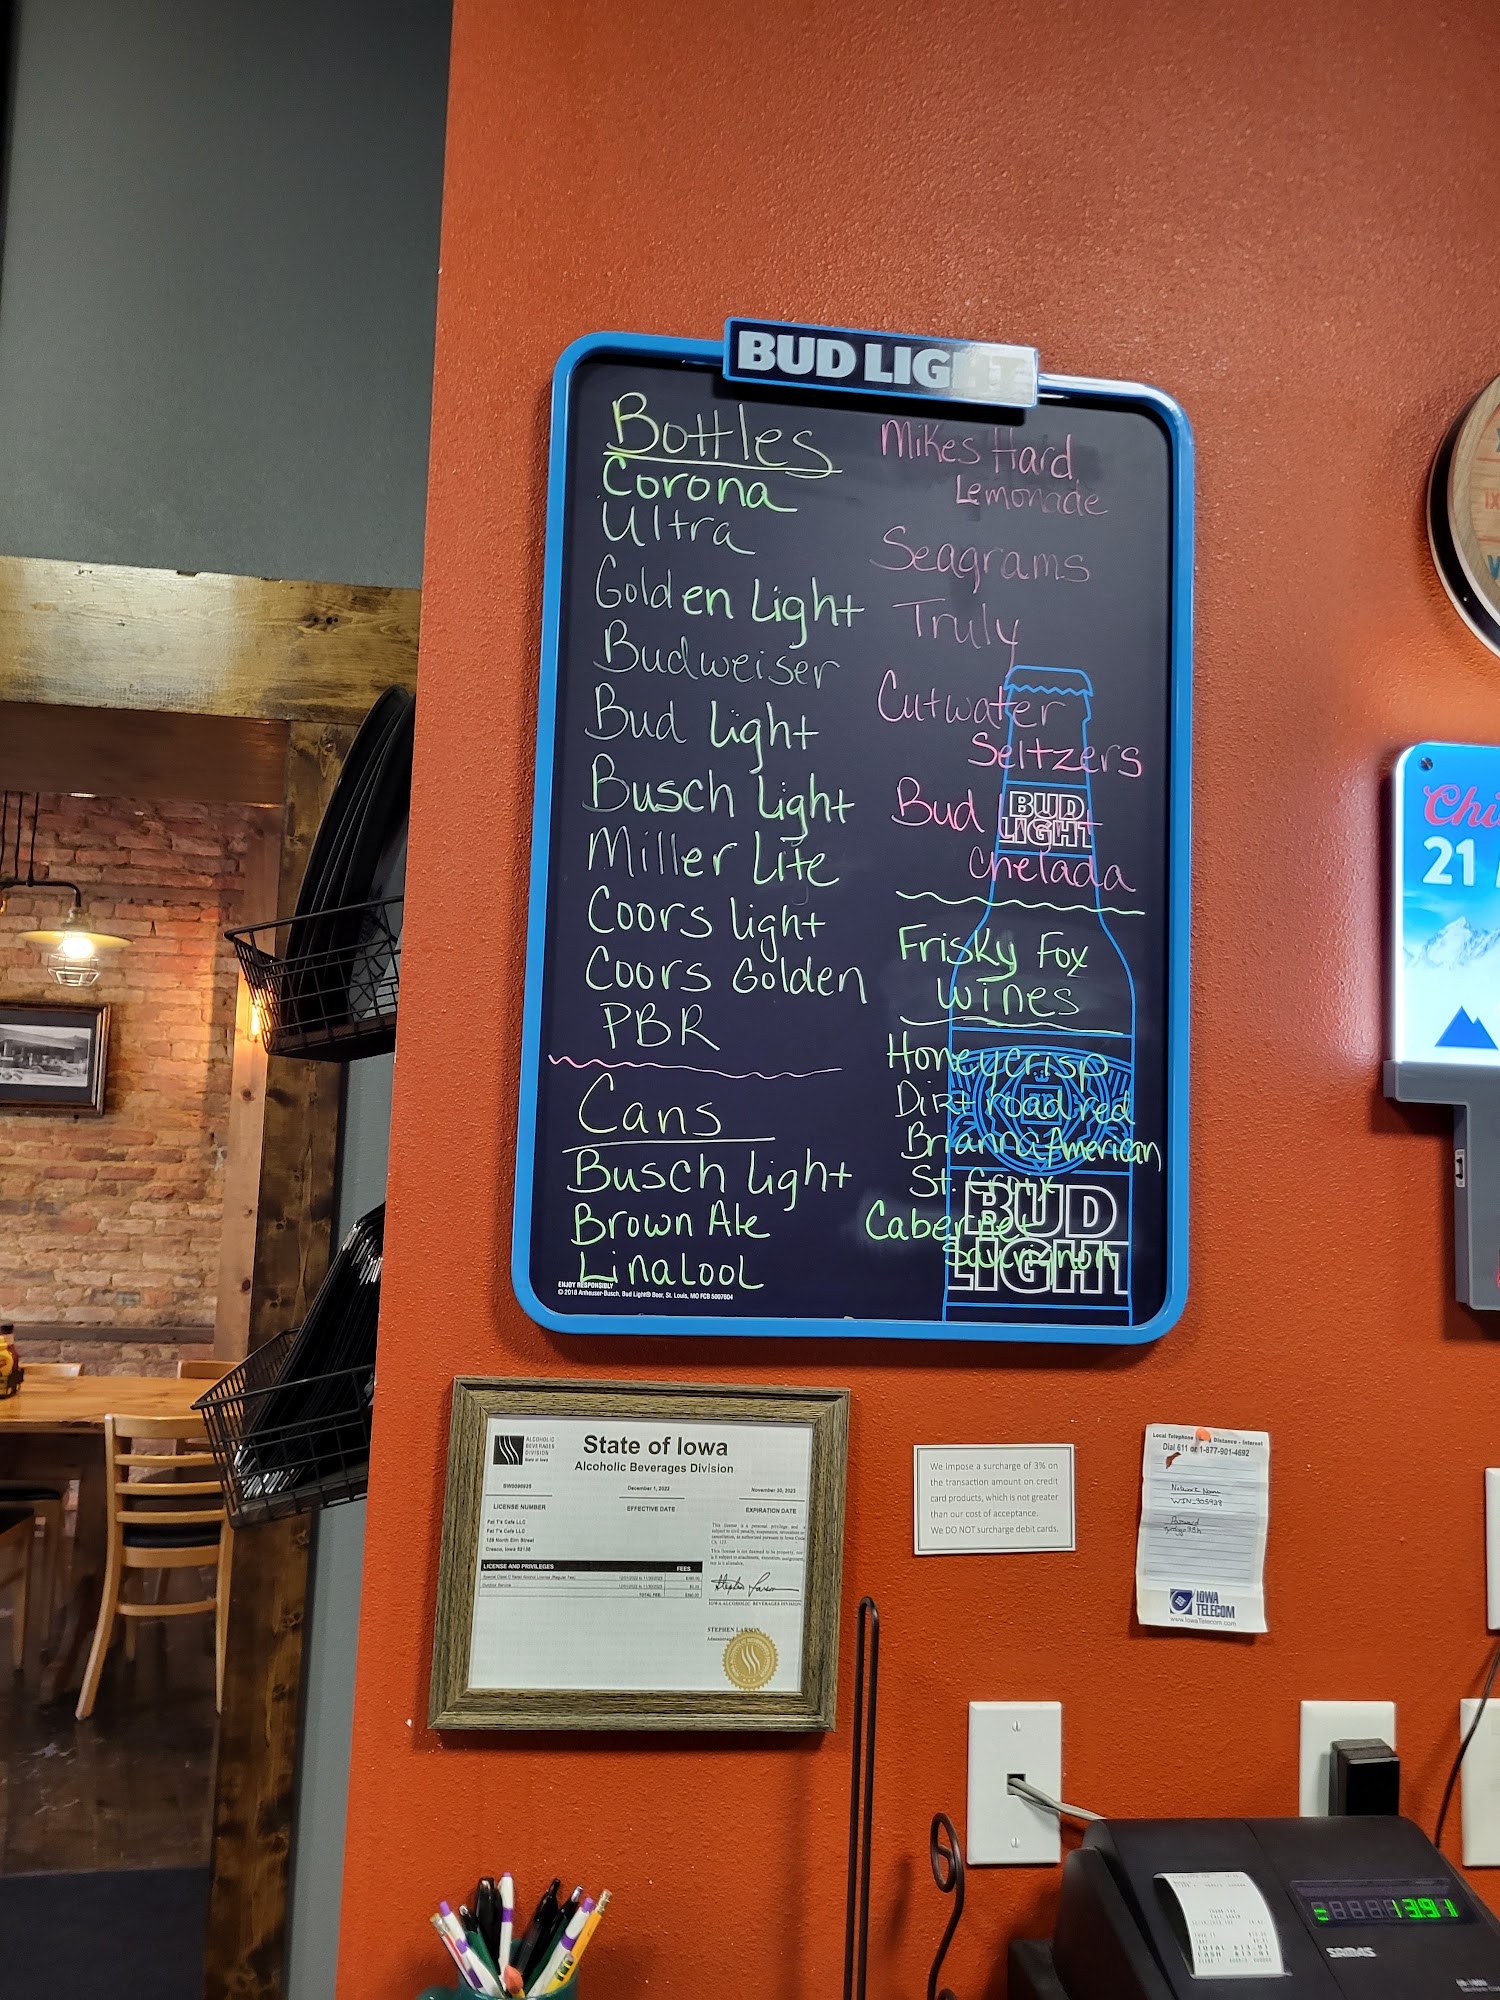 BUD LIGHT
Bottles
Corona
Ultra
Golden Light
Budweiser
Bud Light
Busch Light
Miller Lite
Coors light
Coors Golden
PBR
Cans
Busch Light
Brown Ale
Linalool
Mikes Hard
Lemonade
Seagrams
Truly
Cutwater
Seltzers
Bud
Chelada
Frisky Fox
Wines
Honeycrisp
Dirt road red
Brianna American
St. Croix
Cabernet
Sauvignon
BUD
LIGHT
BUD
LIGHT
ENJOY RESPONSIBLY
© 2018 Anheuser-Busch, Bud Light® Beer, St. Louis, MO FCB 5007604
21
ALCOHOLIC
BEVERAGES
DIVISION
State of Iowa
State of Iowa
Alcoholic Beverages Division
December 1, 2022
November 30, 2023
LICENSE NUMBER
EFFECTIVE DATE
EXPIRATION DATE
Fat T's Cafe LLC
Fat T's Cafe LLC
128 North Elm Street
Cresco, Iowa 52136
LICENSE AND PRIVILEGES
FEES
TOTAL FEE:
STEPHEN LARSON
We impose a surcharge of 3% on
the transaction amount on credit
card products, which is not greater
than our cost of acceptance.
We DO NOT surcharge debit cards.
Local Telephone Distance - Internet
Dial 611 or 1-877-901-4692
Network Name
Password
IOWA
TELECOM
www.IowaTelecom.com
13.91
SAM4S